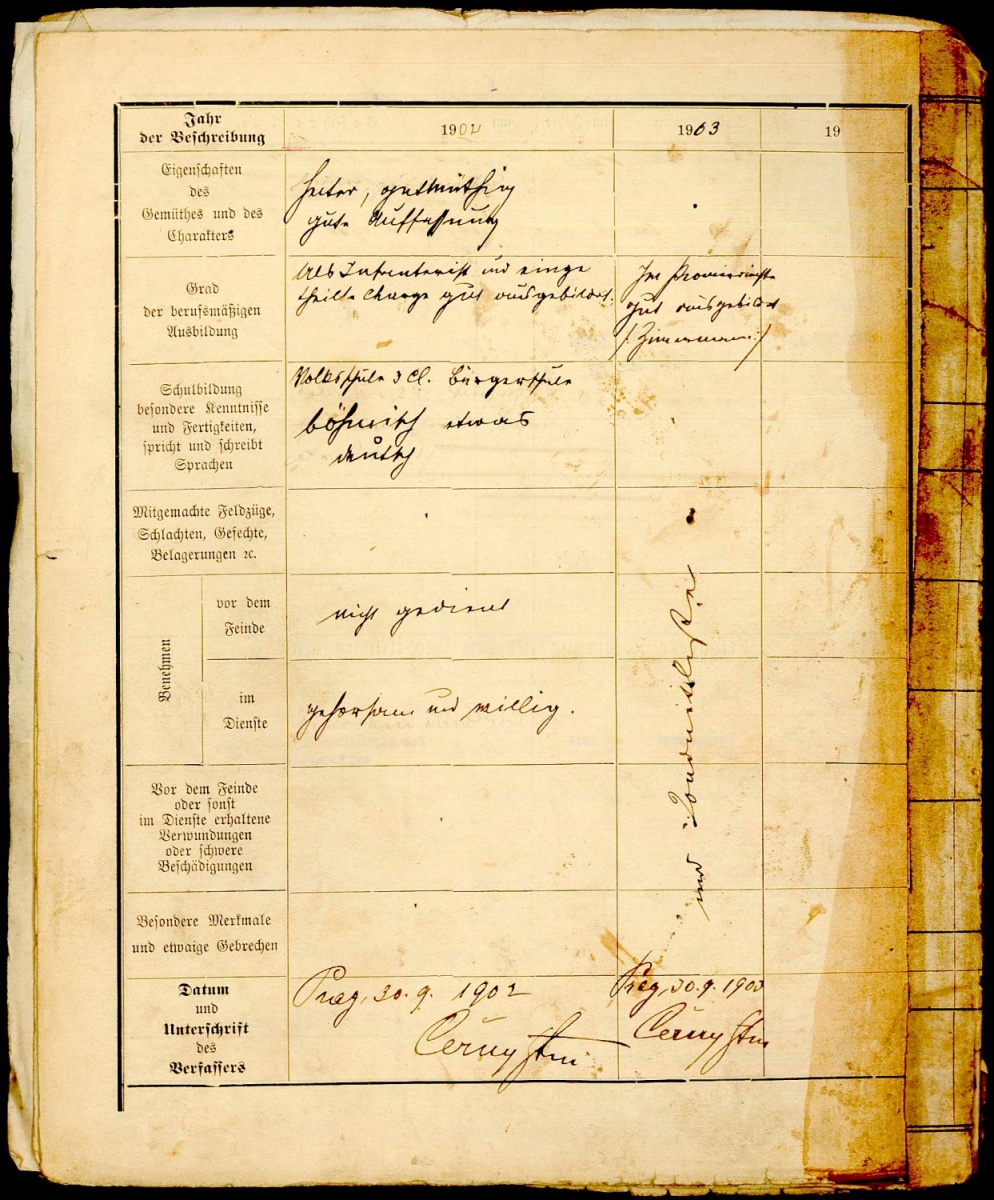 Jahr
der Beschreibung
1902
1903
19
Eigenschaften
des
Gemüthes und des
Charakters
heiter, gutmüthig
gute Auffassung
Grad
der berufsmäßigen
Ausbildung
Als Infanterist und einge
theilte Charge gut ausgebildet.
Im Pionierdienste
gut ausgebildet
/: Zimermann :/
Schulbildung
besondere Kenntnisse
und Fertigkeiten,
spricht und schreibt
Sprachen
Volksschule 3 Cl. Bürgerschule
böhmisch etwas
deutsch
Mitgemachte Feldzüge,
Schlachten, Gefechte,
Belagerungen ꝛc.
Benehmen
vor dem
Feinde
nicht gedient
im
Dienste
gehorsam und willig.
Vor dem Feinde
oder sonst
im Dienste erhaltene
Verwundungen
oder schwere
Beschädigungen
Besondere Merkmale
und etwaige Gebrechen
Datum
und
Unterschrift
des
Verfassers
Prag, 30. 9. 1902
Černy
Prag, 30. 9. 1903
Černy